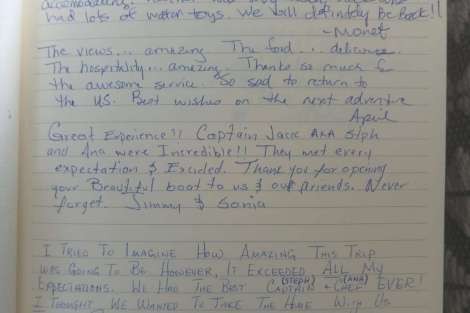 had lots of water toys. We will definitely be back!!
~Monet
The views... amazing The food... delicious.
The hospitality... amazing. Thanks so much for
the awesome service. So sad to return to
the US. Best wishes on the next adventure
April
Great Experience!! Captain Jack AKA Stph
and Ana were Incredible!! They met every
expectation & Excided. Thank you for opening
your Beautiful boat to us & our friends. Never
forget. Jimmy & Sonia
I TRIED TO IMAGINE HOW AMAZING THIS TRIP
WAS GOING TO BE HOWEVER, IT EXCEEDED ALL MY
EXPECTATIONS. WE HAD THE BEST CAPTAIN (STEPH) & CHEF (ANA) EVER!
I THOUGHT WE WANTED TO TAKE THE HOME WITH US